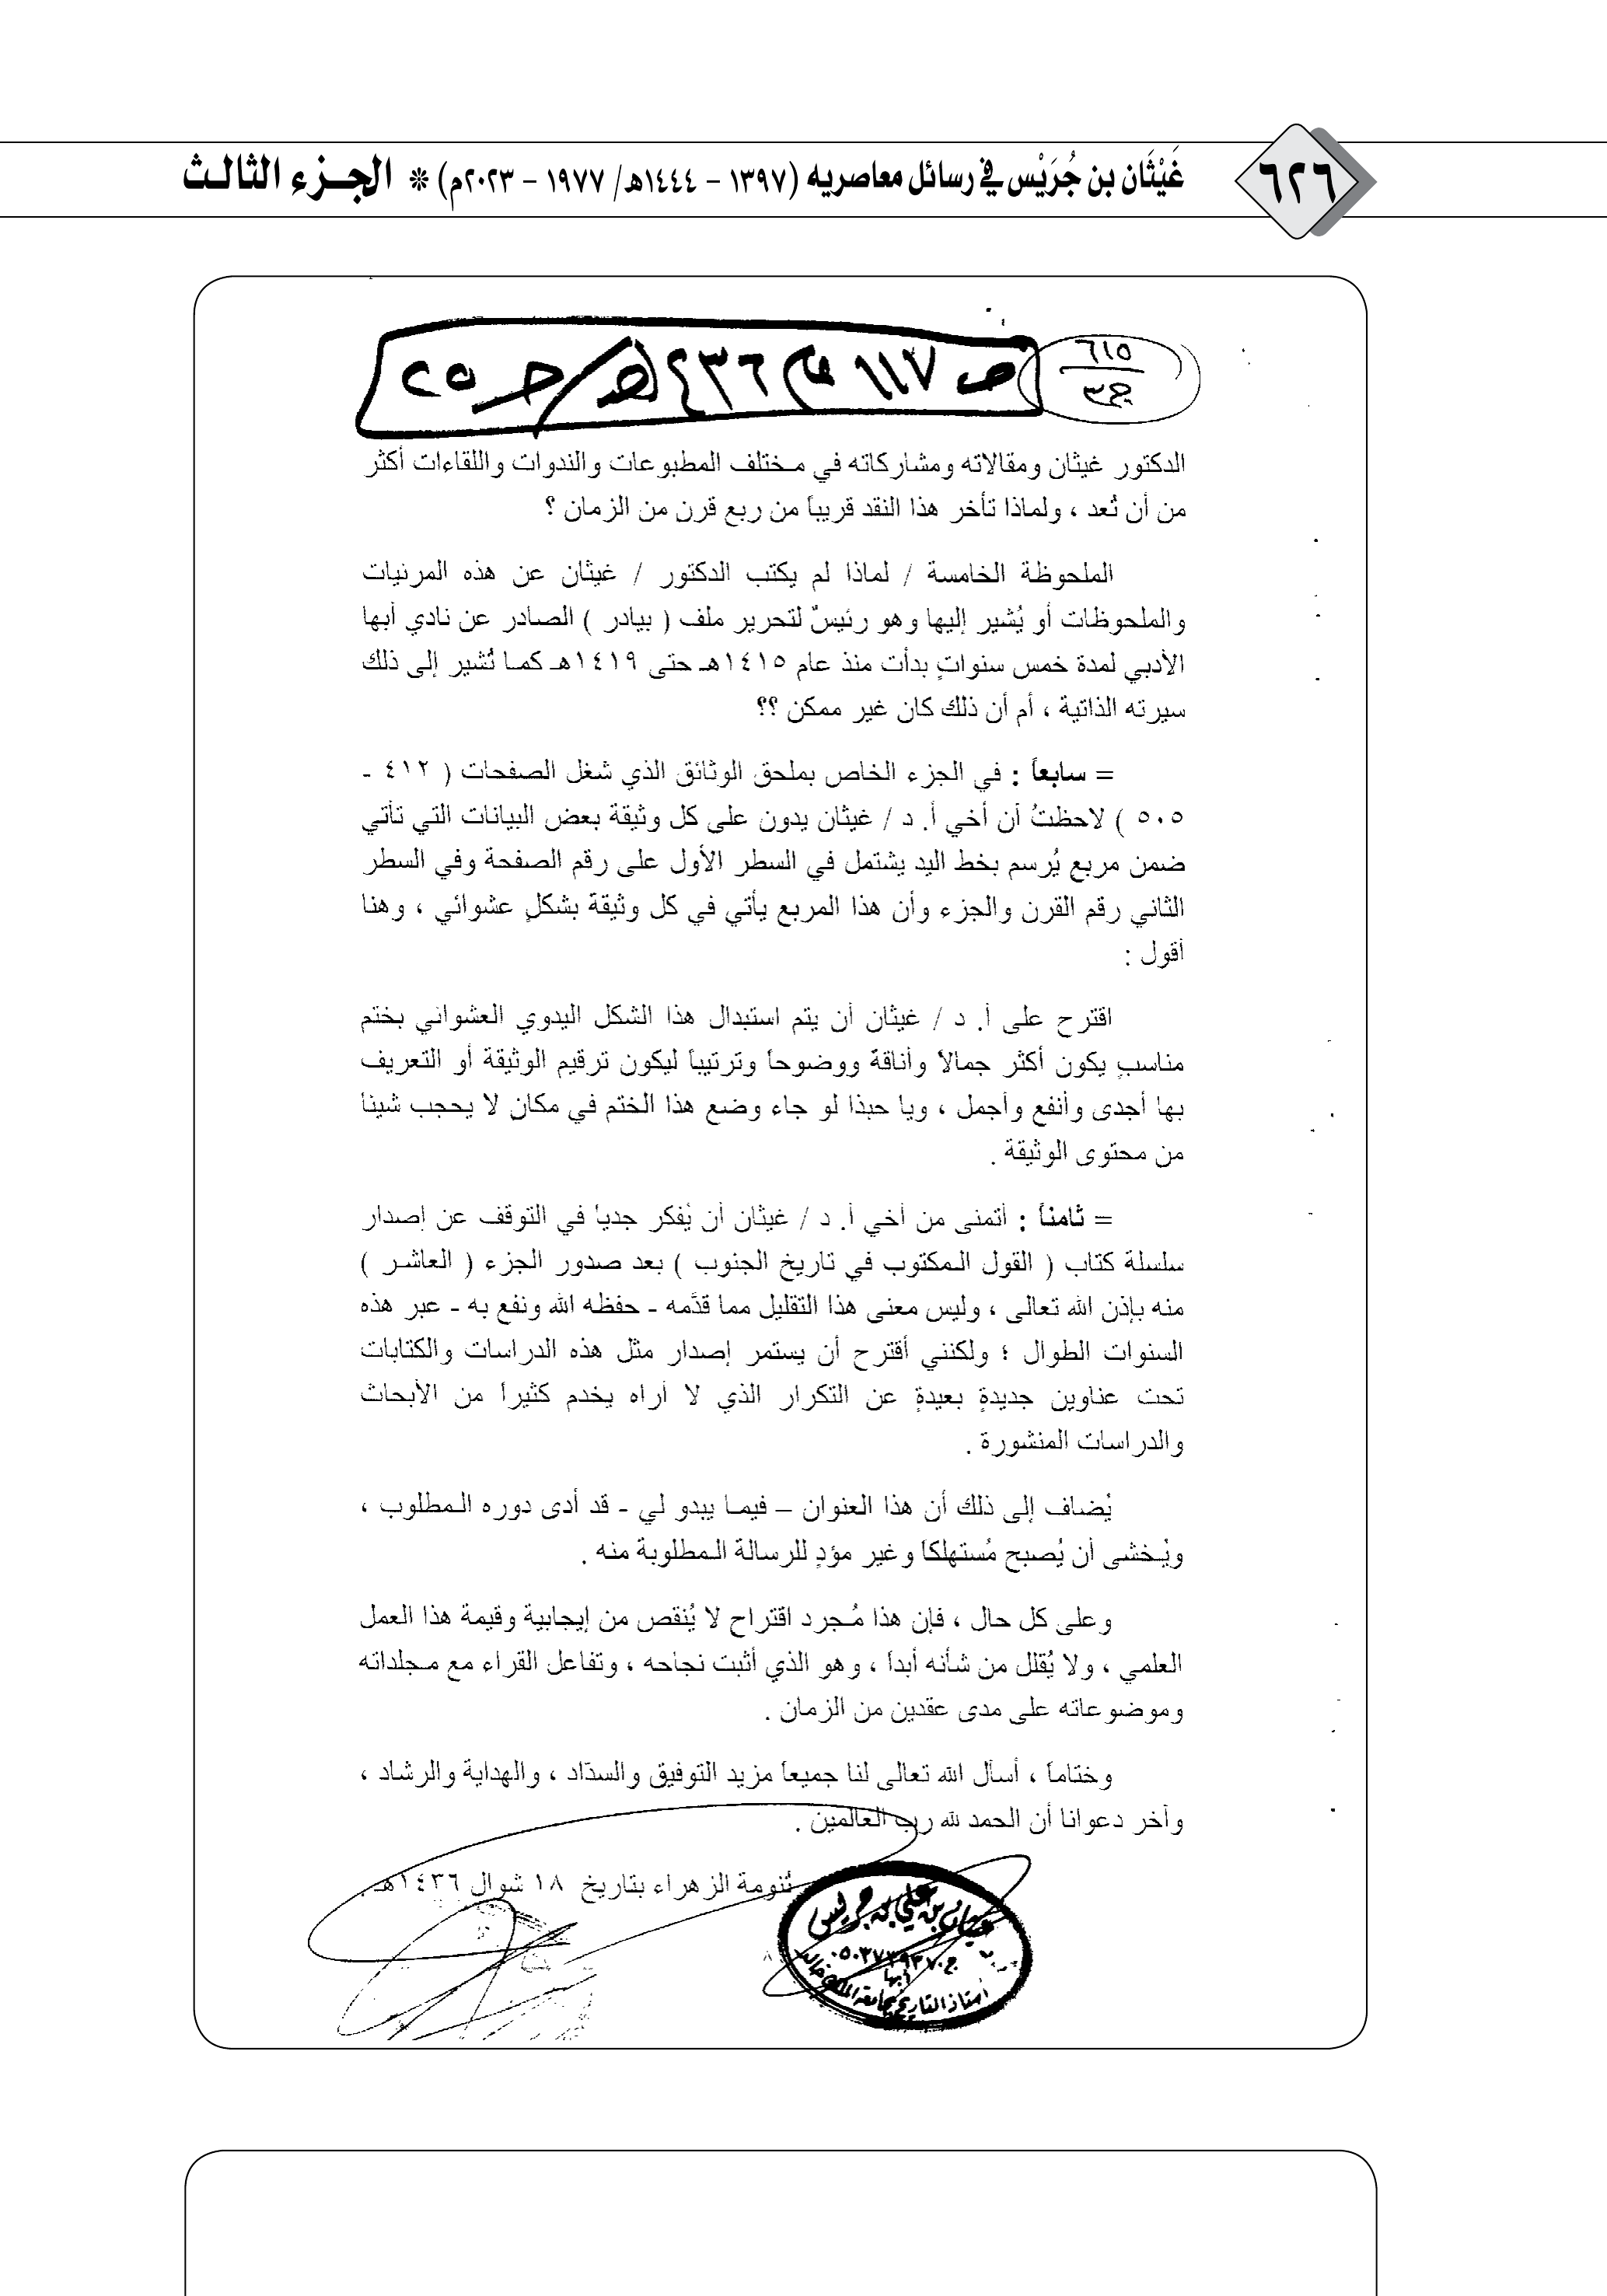 ٦٢٦
غَيْثَان بن جُرَيْس في رسائل معاصريه (١٣٩٧ – ١٤٤٤هـ/ ١٩٧٧ – ٢٠٢٣م) * الجـزء الثالـث
٦١٥
ج٣
ص ١١٧ عام ١٤٣٦هـ / جـ ٢٥
الدكتور غيثان ومقالاته ومشاركاته في مختلف المطبوعات والندوات واللقاءات أكثر
من أن تُعد ، ولماذا تأخر هذا النقد قريباً من ربع قرن من الزمان ؟
الملحوظة الخامسة / لماذا لم يكتب الدكتور / غيثان عن هذه المرئيات
والملحوظات أو يُشير إليها وهو رئيسٌ لتحرير ملف ( بيادر ) الصادر عن نادي أبها
الأدبي لمدة خمس سنواتٍ بدأت منذ عام ١٤١٥هـ حتى ١٤١٩هـ كما تُشير إلى ذلك
سيرته الذاتية ، أم أن ذلك كان غير ممكن ؟؟
= سابعاً : في الجزء الخاص بملحق الوثائق الذي شغل الصفحات ( ٤١٢ -
٥٠٥ ) لاحظتُ أن أخي أ. د / غيثان يدون على كل وثيقة بعض البيانات التي تأتي
ضمن مربع يُرسم بخط اليد يشتمل في السطر الأول على رقم الصفحة وفي السطر
الثاني رقم القرن والجزء وأن هذا المربع يأتي في كل وثيقة بشكلٍ عشوائي ، وهنا
أقول :
اقترح على أ. د / غيثان أن يتم استبدال هذا الشكل اليدوي العشوائي بختم
مناسبٍ يكون أكثر جمالاً وأناقةً ووضوحاً وترتيباً ليكون ترقيم الوثيقة أو التعريف
بها أجدى وأنفع وأجمل ، ويا حبذا لو جاء وضع هذا الختم في مكانٍ لا يحجب شيئاً
من محتوى الوثيقة .
= ثامناً : أتمنى من أخي أ. د / غيثان أن يُفكر جدياً في التوقف عن إصدار
سلسلة كتاب ( القول المكتوب في تاريخ الجنوب ) بعد صدور الجزء ( العاشر )
منه بإذن الله تعالى ، وليس معنى هذا التقليل مما قدَّمه - حفظه الله ونفع به - عبر هذه
السنوات الطوال ؛ ولكنني أقترح أن يستمر إصدار مثل هذه الدراسات والكتابات
تحت عناوين جديدةٍ بعيدةٍ عن التكرار الذي لا أراه يخدم كثيراً من الأبحاث
والدراسات المنشورة .
يُضاف إلى ذلك أن هذا العنوان – فيما يبدو لي - قد أدى دوره المطلوب ،
ويُخشى أن يُصبح مُستهلكاً وغير مؤدٍ للرسالة المطلوبة منه .
وعلى كل حال ، فإن هذا مُجرد اقتراح لا يُنقص من إيجابية وقيمة هذا العمل
العلمي ، ولا يُقلل من شأنه أبداً ، وهو الذي أثبت نجاحه ، وتفاعل القراء مع مجلداته
وموضوعاته على مدى عقدين من الزمان .
وختاماً ، أسأل الله تعالى لنا جميعاً مزيد التوفيق والسدّاد ، والهداية والرشاد ،
وآخر دعوانا أن الحمد لله رب العالمين .
تُنومة الزهراء بتاريخ ١٨ شوال ١٤٣٦هـ .
غيثان بن علي بن جريس
أبها
أستاذ التاريخ بجامعة الملك خالد